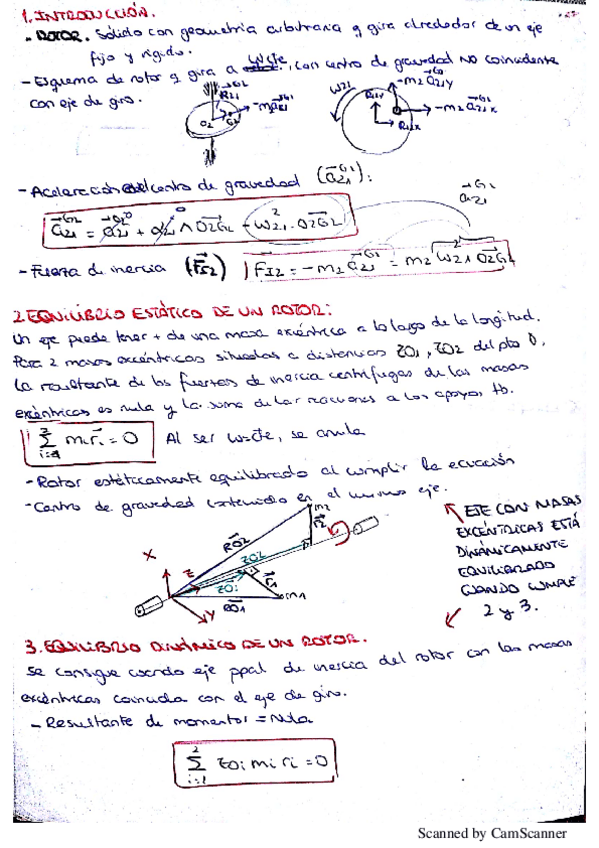 1. INTRODUCCIÓN.
- ROTOR. Sólido con geometría arbitraria q gira alrededor de un eje
fijo y rígido.
- Esquema de rotor q gira a Wcte, con centro de gravedad NO coincidente
con eje de giro.
R21
O2
G2
-m2 a21
W21
-m2 a21y
R21y
R21x
-m2 a21x
- Aceleración del centro de gravedad (a21^G2):
a21^G2 = a21^O2 + α21 ∧ O2G2 - W21² · O2G2
a21^G2
- Fuerza de inercia (FI2) FI2 = -m2 a21^G2 = m2 W21² ∧ O2G2
2. EQUILIBRIO ESTÁTICO DE UN ROTOR:
Un eje puede tener + de una masa excéntrica a lo largo de la longitud.
Para 2 masas excéntricas situadas a distancias ZO1, ZO2 del pto O,
la resultante de las fuerzas de inercia centrífugas de las masas
excéntricas es nula y la suma de las reacciones a los apoyos, tb.
Σ mi ri = 0 Al ser w=cte, se anula
- Rotor estáticamente equilibrado al cumplir la ecuación
- Centro de gravedad contenido en el mismo eje.
EJE CON MASAS
EXCÉNTRICAS ESTÁ
DINÁMICAMENTE
EQUILIBRADO
CUANDO CUMPLE
2 y 3.
m2
r2
RO2
ZO2
X
Z
ZO1
r1
m1
RO1
Y
3. EQUILIBRIO DINÁMICO DE UN ROTOR.
Se consigue cuando eje ppal de inercia del rotor con las masas
excéntricas coincida con el eje de giro.
- Resultante de momentos = Nula
Σ zoi mi ri = 0
Scanned by CamScanner